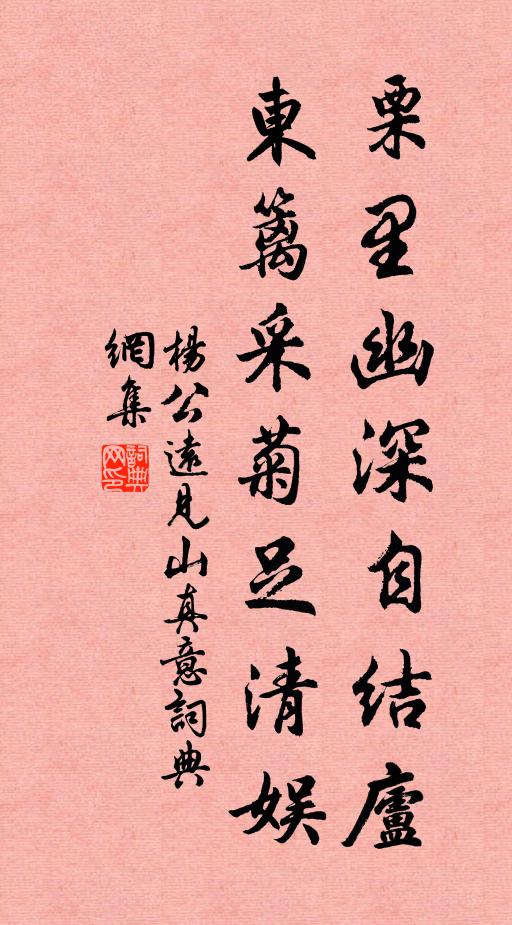 栗里幽深自結廬
東籬采菊足清娛
楊公遠見山真意詞典
網集
詞典
网印